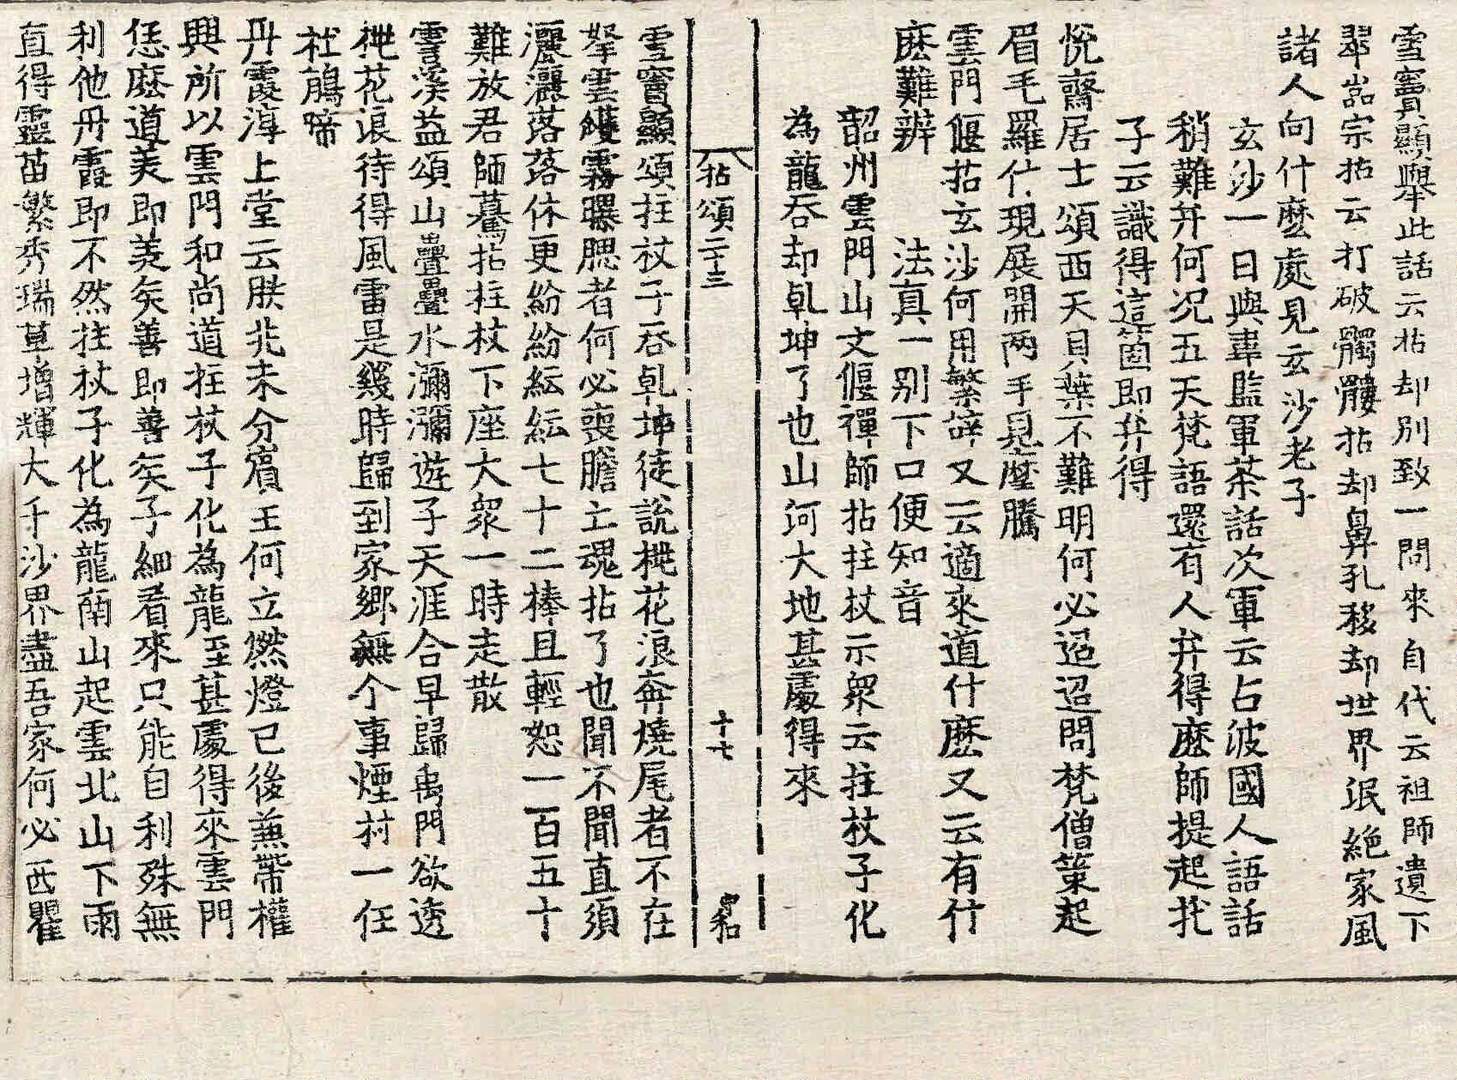 雪竇顯舉此話云拈却別致一問來自代云祖師遺下
翠嵓宗拈云打破髑髏拈却鼻孔移却世界泯絶家風
諸人向什麽處見玄沙老子
玄沙一日與韋監軍茶話次軍云占波國人語話
稍難弁何况五天梵語還有人弁得麽師提起托
子云識得這箇即弁得
悅齋居士頌西天貝葉不難明何必迢迢問梵僧筞起
眉毛羅什現展開两手見摩騰
雲門偃拈玄沙何用繁辝又云適來道什麽又云有什
麽難辨　法真一别下口便知音
韶州雲門山文偃禪師拈拄杖示衆云拄杖子化
為龍吞却乹坤了也山河大地甚處得來
拈頌二十三　十七　宗和
雪竇顯頌拄杖子吞乹坤徒說桃花浪奔燒尾者不在
拏雲攫霧曝腮者何必喪膽亡魂拈了也聞不聞直須
灑灑落落休更紛紛紜紜七十二棒且輕恕一百五十
難放君師驀拈拄杖下座大衆一時走散
霅溪益頌山疊疊水瀰瀰遊子天涯合早歸禹門欲透
桃花浪待得風雷是幾時歸到家鄉無个事煙村一任
杜鵑啼
丹霞淳上堂云朕兆未分賓王何立燃燈已後兼帶權
興所以雲門和尚道拄杖子化為龍至甚處得來雲門
恁麽道美即美矣善即善矣子細看來只能自利殊無
利他丹霞即不然拄杖子化為龍南山起雲北山下雨
直得靈苗繁秀瑞草增輝大千沙界盡吾家何必西瞿